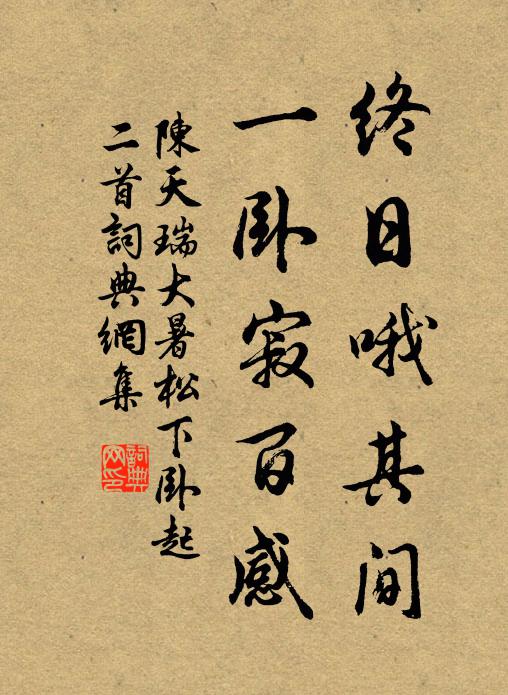 終日哦其间
一卧寂百感
陳天瑞大暑松下卧起
二首詞典網集
詞典网印